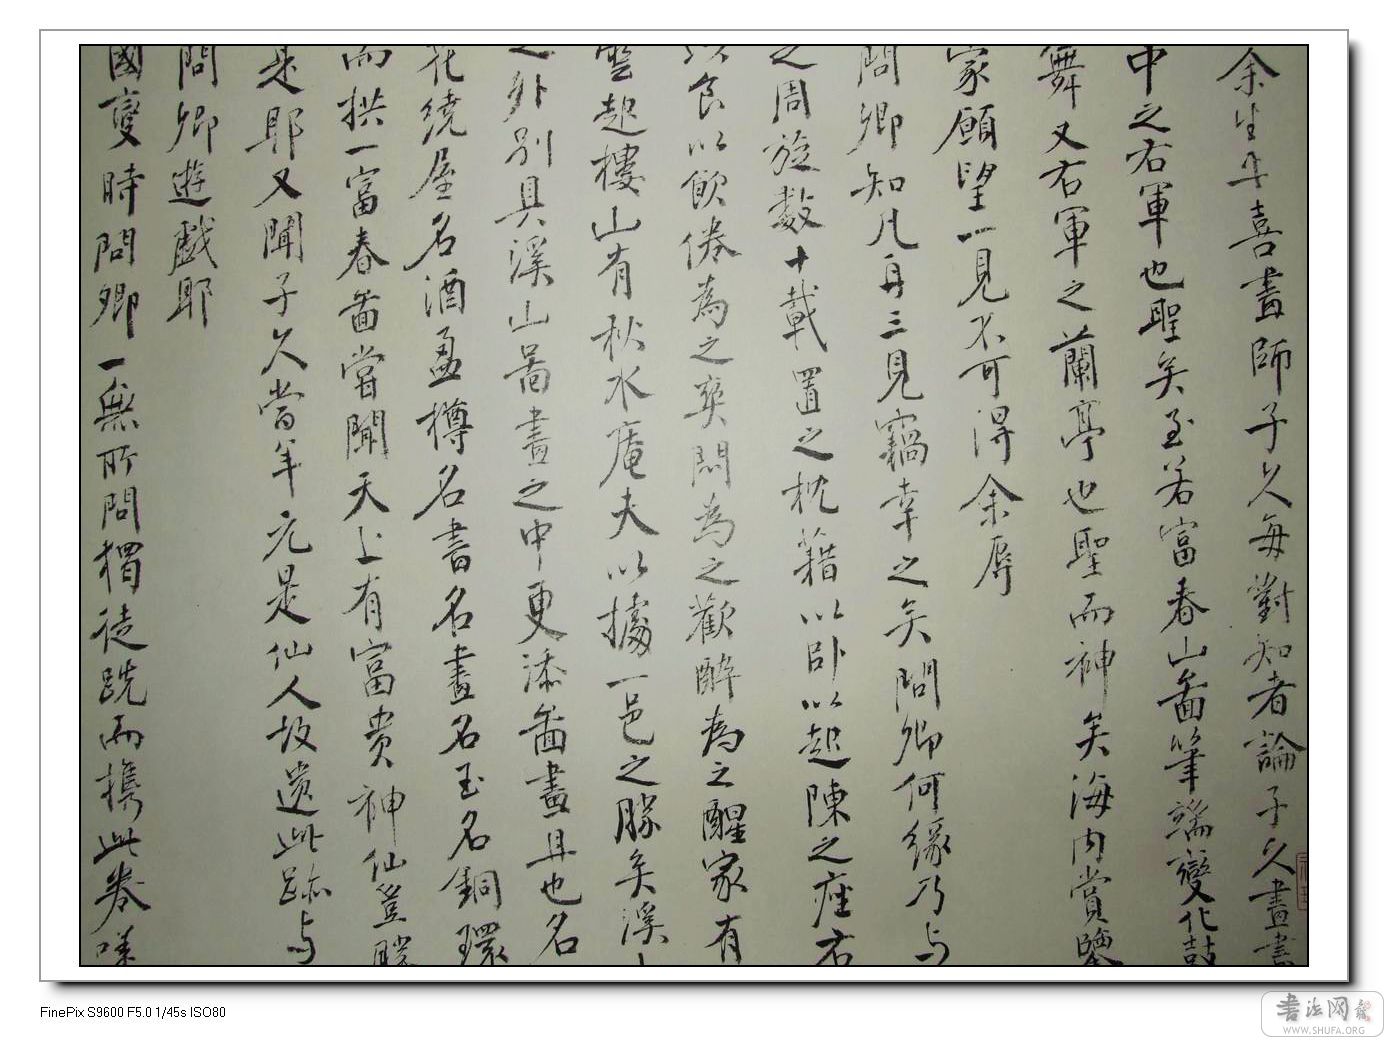 余生平喜畫師子久每對知者論子久畫書
中之右軍也聖矣至若富春山畨筆端變化鼓
舞又右軍之蘭亭也聖而神矣海内賞鑒
家願望一見不可得余辱
問卿知凡再三見竊幸之矣問卿何緣乃与
之周旋数十載置之枕藉以卧以起陳之座右
以食以飲倦為之爽悶為之歡醉為之醒家有
雲起樓山有秋水庵夫以據一邑之勝矣溪山
之外别具溪山啚畫之中更添畨畫且也名
花繞屋名酒盈樽名書名畫名玉名銅環
而拱一富春畨嘗聞天上有富贵神仙豈勝
是耶又聞子久當年元是仙人故遗此跡与
問卿遊戲耶
國變時問卿一無所問獨徒跣而携此卷嗟
FinePix S9600 F5.0 1/45s ISO80
書法网
WWW.SHUFA.ORG